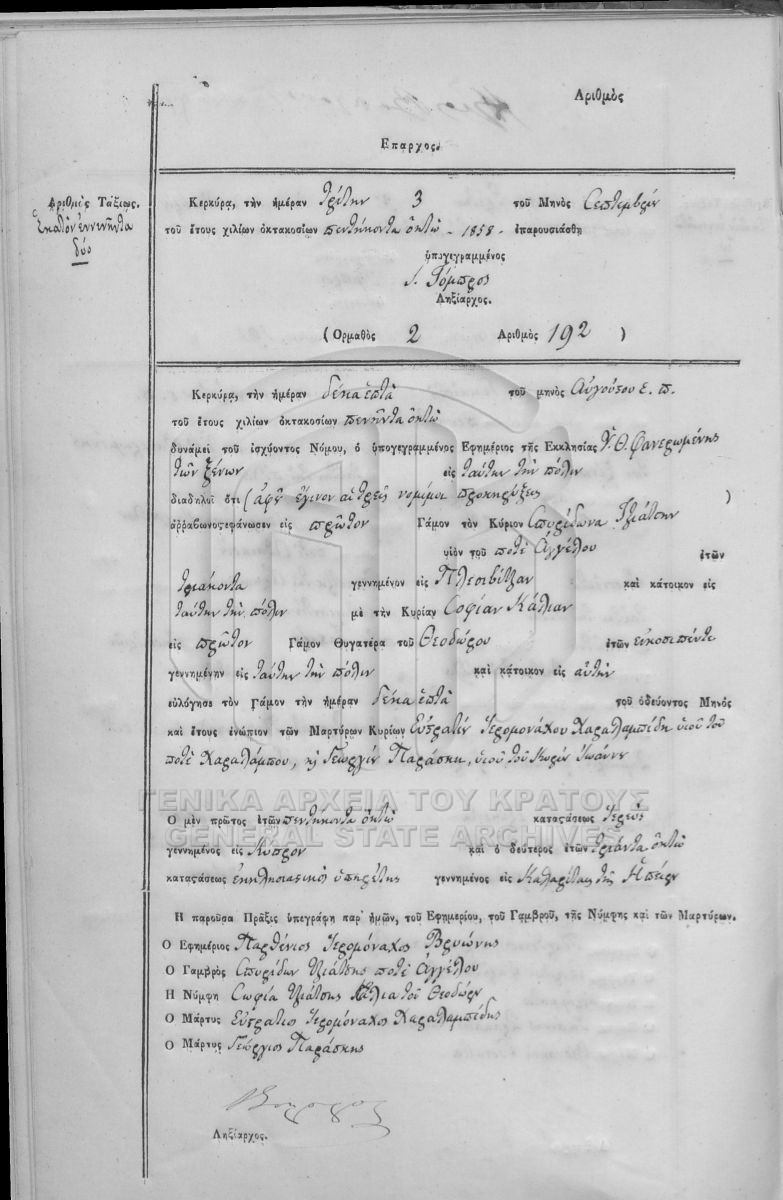 Αριθμὸς
Επαρχος.
Αριθμὸς Τάξεως.
Ἑκατὸν ἐννενῆντα
δύο
Κερκύρα, τὴν ἡμέραν τρίτην 3 τοῦ Μηνὸς Σεπτεμβρίου
τοῦ ἔτους χιλίων ὀκτακοσίων πεντήκοντα ὀκτὼ - 1858 - ἐπαρουσιάσθη
ὑπογεγραμμένος
Ληξίαρχος.
(Ορμαθὸς 2 Αριθμὸς 192 )
Κερκύρα, τὴν ἡμέραν δέκα ἑπτὰ τοῦ μηνὸς Αὐγούστου ε. π.
τοῦ ἔτους χιλίων ὀκτακοσίων πενῆντα ὀκτὼ
δυνάμει τοῦ ἰσχύοντος Νόμου, ὁ ὑπογεγραμμένος Εφημέριος τῆς Εκκλησίας Ὑ. Θ. Φανερωμένης
τῶν ξένων εἰς ταύτην τὴν πόλιν
διαδηλοῖ ὅτι (ἀφ' οὗ ἔγινον αἱ τρεῖς νομίμοι προκηρύξεις )
ἀῤῥαβωνοςεφάνωσεν εἰς πρῶτον Γάμον τὸν Κύριον Σπυρίδωνα Τζιάτζην
υἱὸν τοῦ ποτὲ Ἀγγέλου ἐτῶν
τριάκοντα γεννημένον εἰς Πλεσιβίτζαν καὶ κάτοικον εἰς
ταύτην τὴν πόλιν μὲ τὴν Κυρίαν Σοφίαν Κάλιαν
εἰς πρῶτον Γάμον Θυγατέρα τοῦ Θεοδώρου ἐτῶν εἰκοσιπέντε
γεννημένην εἰς ταύτην τὴν πόλιν καὶ κάτοικον εἰς αὐτὴν
εὐλόγησε τὸν Γάμον τὴν ἡμέραν δέκα ἑπτὰ τοῦ ὁδεύοντος Μηνὸς
καὶ ἔτους ἐνώπιον τῶν Μαρτύρων Κυρίων Εὐστρατίου Ἱερομονάχου Χαραλαμπίδη υἱοῦ τοῦ
ποτὲ Χαραλάμπου, κὶ Γεωργίου Παράσκη, υἱοῦ τοῦ Κυρίου Ἰωάννου
ΓΕΝΙΚΑ ΑΡΧΕΙΑ ΤΟΥ ΚΡΑΤΟΥΣ
GENERAL STATE ARCHIVES
Ο μὲν πρῶτος ἐτῶν πεντήκοντα ὀκτὼ καταςάσεως Ἱερεὺς
γεννημένος εἰς Κύπρον καὶ ὁ δεύτερος ἐτῶν τριάντα ὀκτὼ
καταςάσεως ἐκκλησιαστικὸς ὑπηρέτης γεννημένος εἰς Καλαρίταις τῆς Ἠπείρου
Η παροῦσα Πρᾶξις ὑπεγράφη παρ' ἡμῶν, τοῦ Εφημερίου, τοῦ Γαμβροῦ, τῆς Νύμφης καὶ τῶν Μαρτύρων.
Ο Εφημέριος Παρθένιος Ἱερομόναχος Βρυώνης
Ο Γαμβρὸς Σπυρίδων Τζιάτζης ποτὲ Ἀγγέλου
Η Νύμφη Σωφία Τζιάτζης Κάλια τοῦ Θεοδώρου
Ο Μάρτυς Εὐστράτιος Ἱερομόναχος Χαραλαμπίδης
Ο Μάρτυς Γεώργιος Παράσκης
Ληξίαρχος.